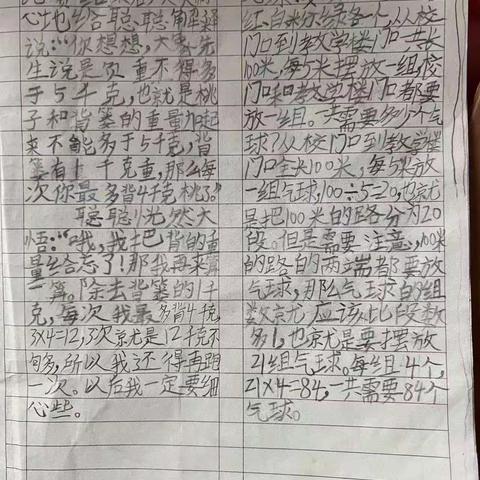 心地给聪聪解释
说:“你想想,大象先
生说是负重不得多
于5千克,也就是桃
子和背篓的重量加起
来不能多于5千克,背
篓有1千克重,那么每
次你最多背4千克桃子。”
聪聪恍然大
悟:“哦,我把背的重
量给忘了!那我再来算
一算。除去背篓的1千
克,每次我最多背4千克
3×4=12,3次就是12千克不
够多,所以我还得再跑
一次。以后我一定要细
心些。
红白粉绿各一个,从校
门口到教学楼门口一共长
100米,每5米摆放一组,校
门口和教学楼门口都要
放一组。一共需要多少个气
球?从校门口到教学楼
门口全长100米,每5米放
一组气球,100÷5=20,也就
是把100米的路分为20
段。但是需要注意,100米
的路的两端都要放
气球,那么气球的组
数就应该比段数
多1,也就是要摆放
21组气球。每组4个,
21×4=84,一共需要84个
气球。